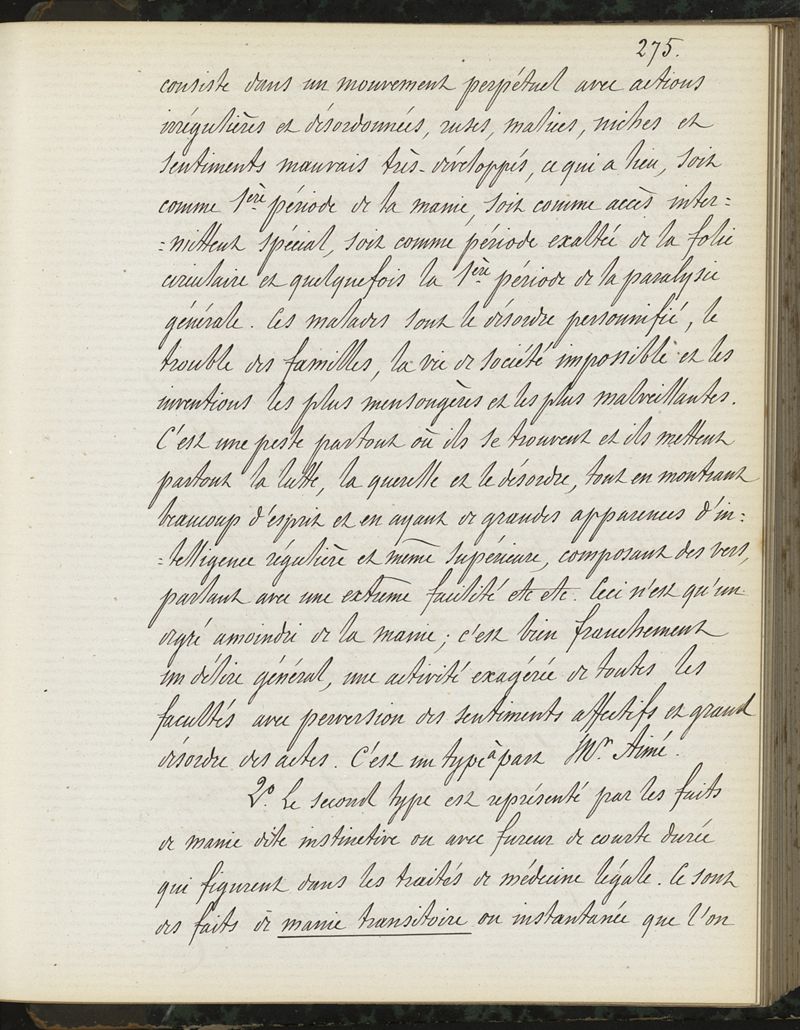 275.
consiste dans un mouvement perpétuel avec actions
irrégulières et désordonnées, ruses, malices, niches et
sentiments mauvais très-développés, ce qui a lieu, soit
comme 1ère période de la manie, soit comme accès inter=
=mittent spécial, soit comme période exaltée de la folie
circulaire et quelquefois la 1ère période de la paralysie
générale. Ces malades sont le désordre personnifié, le
trouble des familles, la vie de société impossible et les
inventions les plus mensongères et les plus malveillantes.
C'est une peste partout où ils se trouvent et ils mettent
partout la lutte, la querelle et le désordre, tout en montrant
beaucoup d'esprit et en ayant de grandes apparences d'in=
=telligence régulière et même supérieure, composant des vers,
parlant avec une extrême facilité etc etc. Ceci n'est qu'un
degré amoindri de la manie; c'est bien franchement
un délire général, une activité exagérée de toutes les
facultés avec perversion des sentiments affectifs et grand
désordre des actes. C'est un type à part Mr. Aimé.
2o. Le second type est représenté par les faits
de manie dite instinctive ou avec fureur de courte durée
qui figurent dans les traités de médecine légale. Ce sont
des faits de manie transitoire ou instantanée que l'on